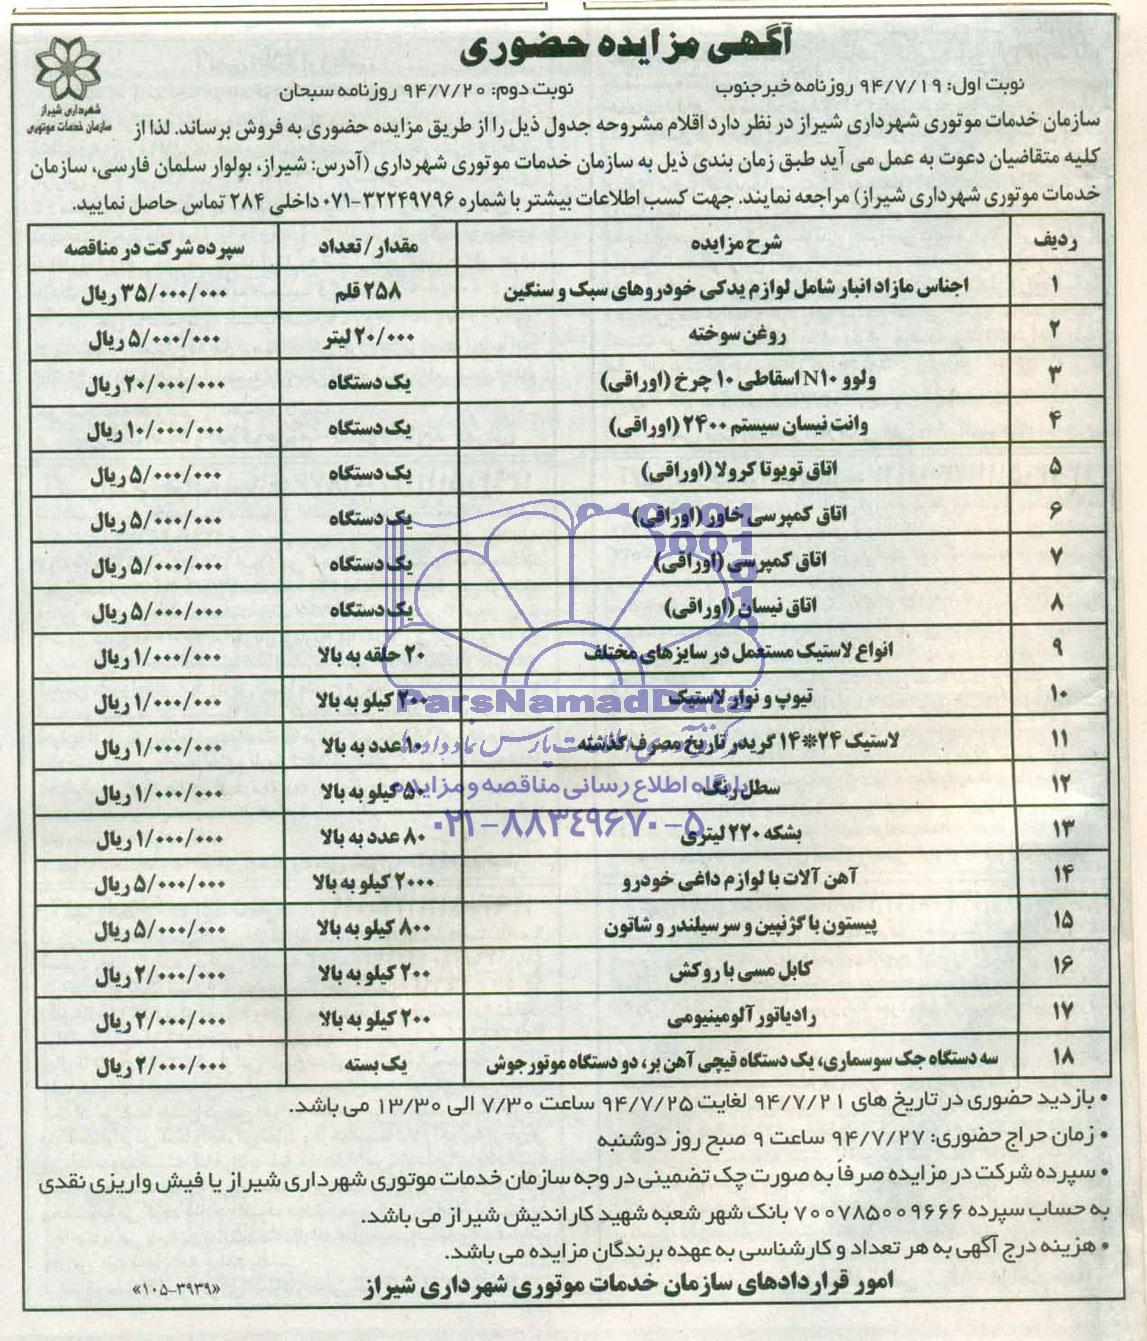 آگهی مزایده حضوری
شهرداری شیراز
سازمان خدمات موتوری
نوبت اول: ۹۴/۷/۱۹ روزنامه خبرجنوب نوبت دوم: ۹۴/۷/۲۰ روزنامه سبحان
سازمان خدمات موتوری شهرداری شیراز در نظر دارد اقلام مشروحه جدول ذیل را از طریق مزایده حضوری به فروش برساند. لذا از
کلیه متقاضیان دعوت به عمل می آید طبق زمان بندی ذیل به سازمان خدمات موتوری شهرداری (آدرس: شیراز، بولوار سلمان فارسی، سازمان
خدمات موتوری شهرداری شیراز) مراجعه نمایند. جهت کسب اطلاعات بیشتر با شماره ۳۲۲۴۹۷۹۶-۰۷۱ داخلی ۲۸۴ تماس حاصل نمایید.
ردیف شرح مزایده مقدار / تعداد سپرده شرکت در مناقصه
۱ اجناس مازاد انبار شامل لوازم یدکی خودروهای سبک و سنگین ۲۵۸ قلم ۳۵/۰۰۰/۰۰۰ ریال
۲ روغن سوخته ۲۰/۰۰۰ لیتر ۵/۰۰۰/۰۰۰ ریال
۳ ولوو N۱۰ اسقاطی ۱۰ چرخ (اوراقی) یک دستگاه ۲۰/۰۰۰/۰۰۰ ریال
۴ وانت نیسان سیستم ۲۴۰۰ (اوراقی) یک دستگاه ۱۰/۰۰۰/۰۰۰ ریال
۵ اتاق تویوتا کرولا (اوراقی) یک دستگاه ۵/۰۰۰/۰۰۰ ریال
۶ اتاق کمپرسی خاور (اوراقی) یک دستگاه ۵/۰۰۰/۰۰۰ ریال
۷ اتاق کمپرسی (اوراقی) یک دستگاه ۵/۰۰۰/۰۰۰ ریال
۸ اتاق نیسان (اوراقی) یک دستگاه ۵/۰۰۰/۰۰۰ ریال
۹ انواع لاستیک مستعمل در سایزهای مختلف ۲۰ حلقه به بالا ۱/۰۰۰/۰۰۰ ریال
۱۰ تیوپ و نوار لاستیک ۲۰۰ کیلو به بالا ۱/۰۰۰/۰۰۰ ریال
۱۱ لاستیک ۲۴*۱۴ گریدر تاریخ مصرف گذشته عدد به بالا ۱/۰۰۰/۰۰۰ ریال
۱۲ سطل رنگ ۵۰ کیلو به بالا ۱/۰۰۰/۰۰۰ ریال
۱۳ بشکه ۲۲۰ لیتری ۸۰ عدد به بالا ۱/۰۰۰/۰۰۰ ریال
۱۴ آهن آلات با لوازم داغی خودرو ۲۰۰۰ کیلو به بالا ۵/۰۰۰/۰۰۰ ریال
۱۵ پیستون با گژنپین و سرسیلندر و شاتون ۸۰۰ کیلو به بالا ۵/۰۰۰/۰۰۰ ریال
۱۶ کابل مسی با روکش ۲۰۰ کیلو به بالا ۲/۰۰۰/۰۰۰ ریال
۱۷ رادیاتور آلومینیومی ۲۰۰ کیلو به بالا ۲/۰۰۰/۰۰۰ ریال
۱۸ سه دستگاه جک سوسماری، یک دستگاه قیچی آهن بر، دو دستگاه موتور جوش یک بسته ۲/۰۰۰/۰۰۰ ریال
ParsNamadData
پایگاه اطلاع رسانی مناقصه و مزایده
۰۲۱-۸۸۳۴۹۶۷۰-۵
• بازدید حضوری در تاریخ های ۹۴/۷/۲۱ لغایت ۹۴/۷/۲۵ ساعت ۷/۳۰ الی ۱۳/۳۰ می باشد.
• زمان حراج حضوری: ۹۴/۷/۲۷ ساعت ۹ صبح روز دوشنبه
• سپرده شرکت در مزایده صرفاً به صورت چک تضمینی در وجه سازمان خدمات موتوری شهرداری شیراز یا فیش واریزی نقدی
به حساب سپرده ۷۰۰۷۸۵۰۰۹۶۶۶ بانک شهر شعبه شهید کاراندیش شیراز می باشد.
• هزینه درج آگهی به هر تعداد و کارشناسی به عهده برندگان مزایده می باشد.
امور قراردادهای سازمان خدمات موتوری شهرداری شیراز
«۱۰۵-۳۹۳۹»